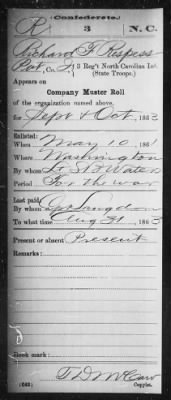 (Confederate.)
R 3 N.C.
Richard F Respess
Pvt, Co. I, 3 Reg't North Carolina Inf.
(State Troops.)
Appears on
Company Muster Roll
of the organization named above,
for Sept & Oct, 1863
Enlisted:
When May 10, 1861
Where Washington
By whom Lt. S B Waters
Period For the war
Last paid:
By whom Capt Langdon
To what time Aug 31, 1863
Present or absent Present
Remarks:
Book mark:
T D McCaw
(642) Copyist.